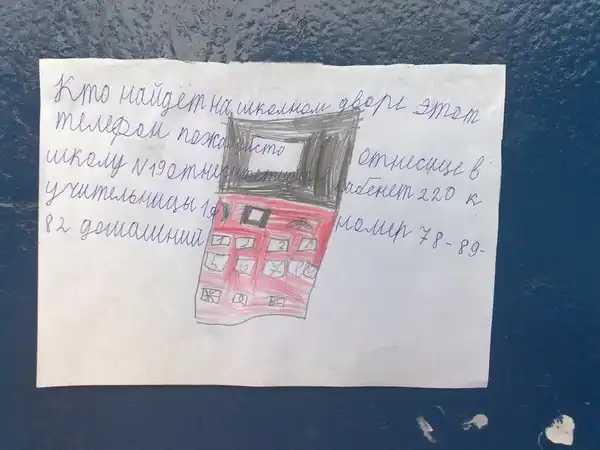 Кто найдёт на школном дворе этот
телефон пожалусто отнесите в
школу N 19 отни кабенет 220 к
учительницы 1 номер 78-89-
82 домашний
1 2 3 4
5 6 7 8
Ж 0